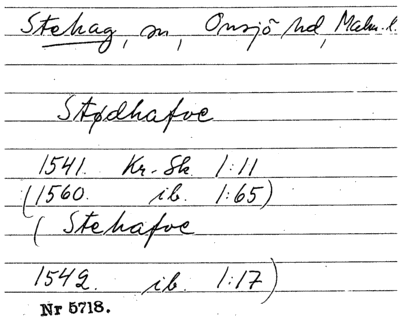 Stehag, sn, Onsjö hd, Malm. l.
Stødhafve
1541. Kr. Sk. 1:11
(1560. ib. 1:65)
( Stehafve
1542. ib. 1:17)
Nr 5718.